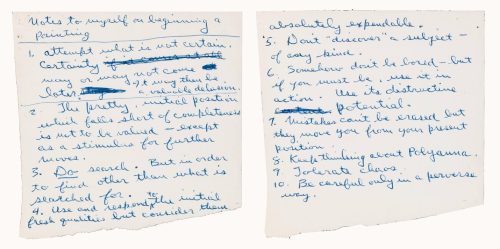 Notes to myself on beginning a
Painting
1. attempt what is not certain.
Certainty
may or may not come
later. It may then be
a valuable delusion.
2. The pretty, initial position
which falls short of completeness
is not to be valued – except
as a stimulus for further
moves.
3. Do search. But in order
to find other than what is
searched for.
4. Use and respond to the initial
fresh qualities but consider them
absolutely expendable.
5. Dont "discover" a subject –
of any kind.
6. Somehow don't be bored – but
if you must be, use it in
action. Use its distructive
potential.
7. Mistakes can't be erased but
they move you from your present
position.
8. Keep thinking about Polyanna.
9. Tolerate chaos.
10. Be careful only in a perverse
way.